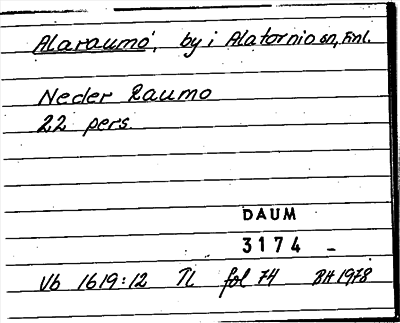 Alaraumo, by i Alatornio sn, Finl.
Neder Raumo
22 pers.
DAUM
3174 -
Vb 1619:12 TL fol 74 BH 1978